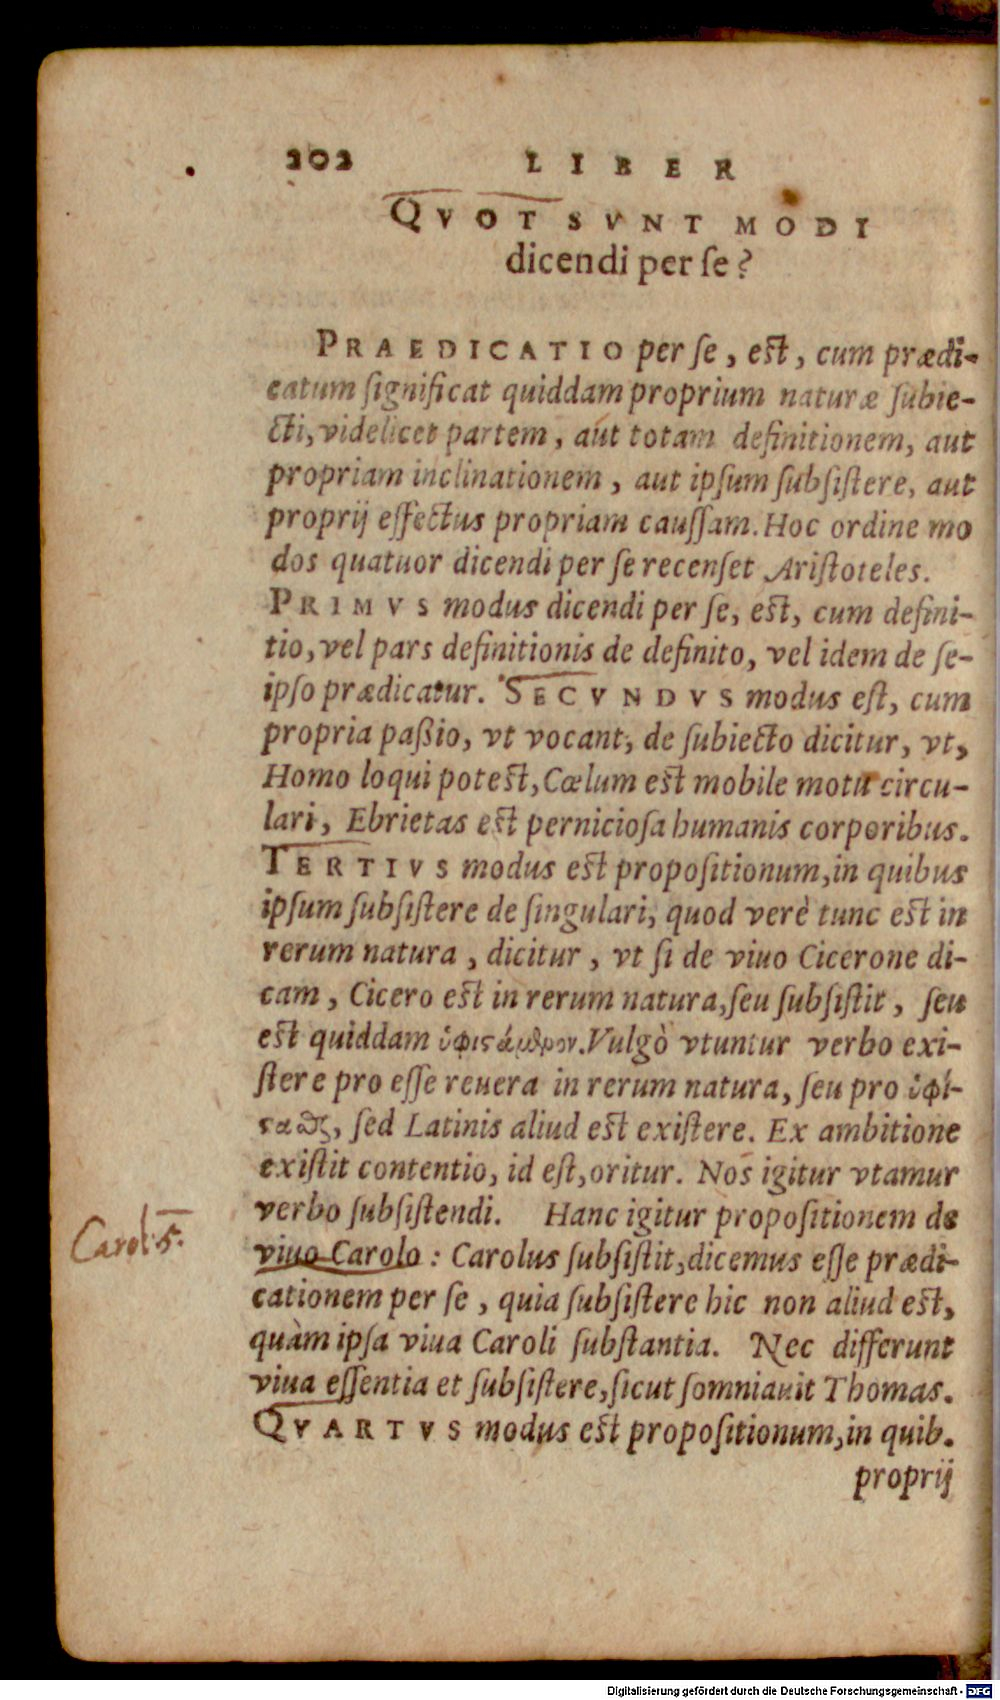 202 LIBER
QVOT SVNT MODI
dicendi per se?
PRAEDICATIO per se, est, cum prædi-
catum significat quiddam proprium naturæ subie-
cti, videlicet partem, aut totam definitionem, aut
propriam inclinationem, aut ipsum subsistere, aut
proprij effectus propriam caussam. Hoc ordine mo
dos quatuor dicendi per se recenset Aristoteles.
PRIMVS modus dicendi per se, est, cum defini-
tio, vel pars definitionis de definito, vel idem de se-
ipso prædicatur. SECVNDVS modus est, cum
propria paßio, vt vocant, de subiecto dicitur, vt,
Homo loqui potest, Cœlum est mobile motu circu-
lari, Ebrietas est perniciosa humanis corporibus.
TERTIVS modus est propositionum, in quibus
ipsum subsistere de singulari, quod verè tunc est in
rerum natura, dicitur, vt si de viuo Cicerone di-
cam, Cicero est in rerum natura, seu subsistit, seu
est quiddam ὑφιϛάμενον. Vulgò vtuntur verbo exi-
stere pro esse reuera in rerum natura, seu pro ὑφί-
ϛαϑαι, sed Latinis aliud est existere. Ex ambitione
existit contentio, id est, oritur. Nos igitur vtamur
verbo subsistendi. Hanc igitur propositionem de
Carol. 5.
viuo Carolo: Carolus subsistit, dicemus esse prædi-
cationem per se, quia subsistere hic non aliud est,
quàm ipsa viua Caroli substantia. Nec differunt
viua essentia et subsistere, sicut somniauit Thomas.
QVARTVS modus est propositionum, in quib.
proprij
Digitalisierung gefördert durch die Deutsche Forschungsgemeinschaft - DFG